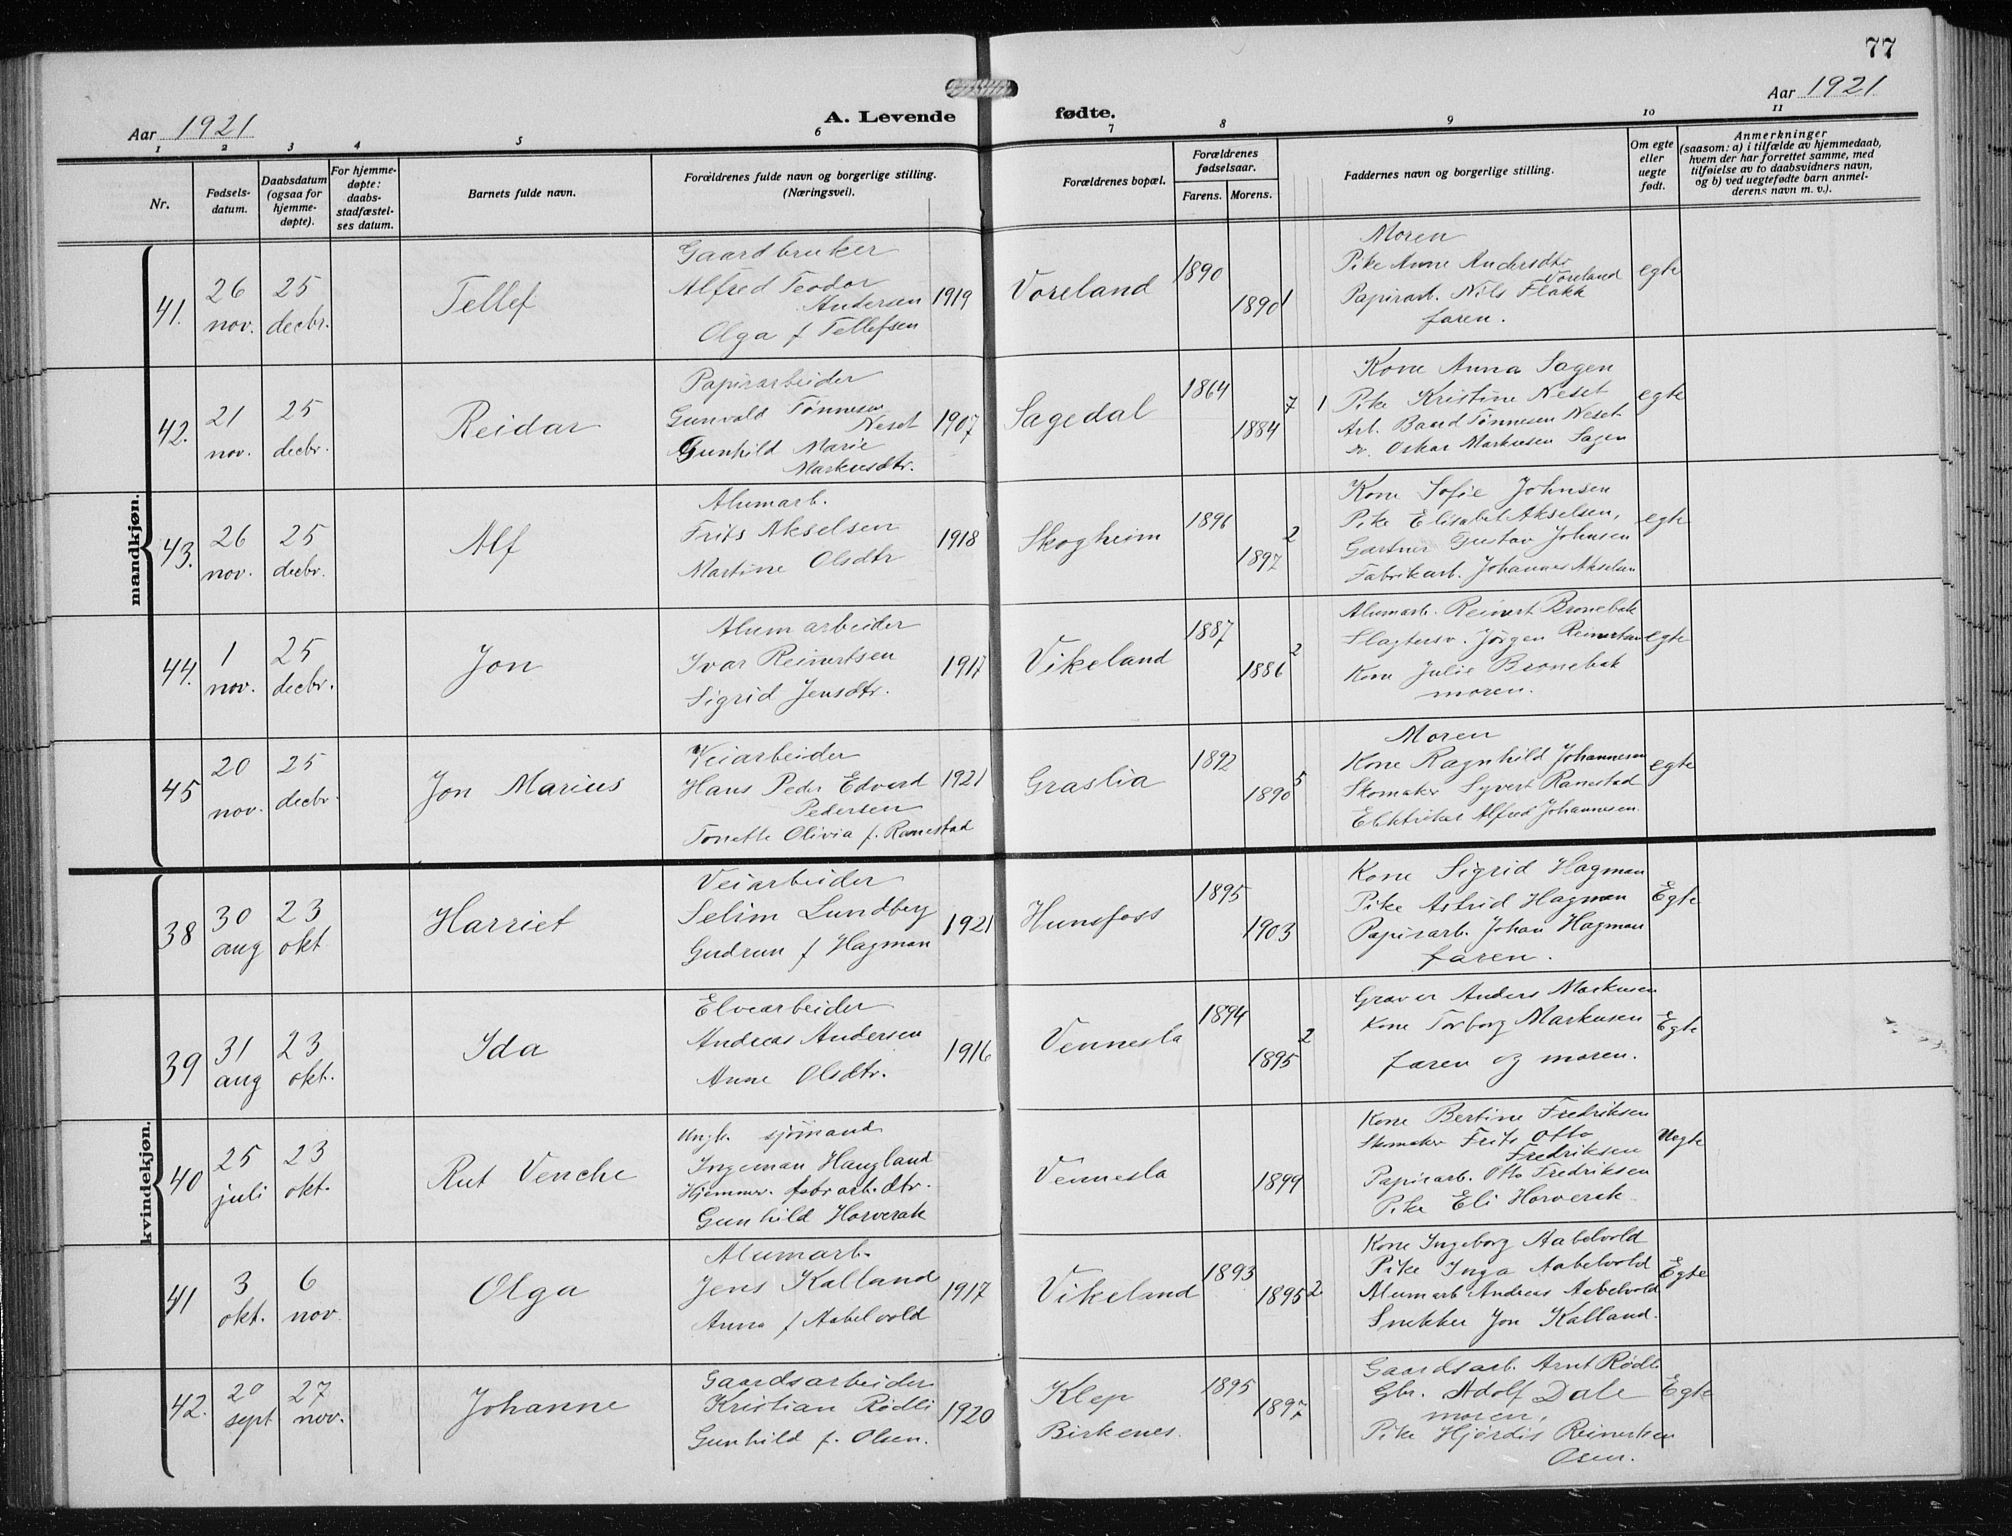 77
Aar 1921
A. Levende fødte.
Aar 1921
1 2 3 4 5 6 7 8 9 10 11
Nr.
Fødsels-
datum.
Daabsdatum
(ogsaa for
hjemme-
døpte).
For hjemme-
døpte:
daabs-
stadfæstel-
ses datum.
Barnets fulde navn.
Forældrenes fulde navn og borgerlige stilling.
(Næringsvei).
Forældrenes bopæl.
Forældrenes
fødselsaar.
Farens. Morens.
Faddernes navn og borgerlige stilling.
Om egte
eller
uegte
født.
Anmerkninger
(saasom: a) i tilfælde av hjemmedaab,
hvem der har forrettet samme, med
tilføielse av to daabsvidners navn,
og b) ved uegtefødte barn anmel-
derens navn m. v.).
mandkjøn.
41.
26
nov.
25
decbr.
Tellef
Gaardbruker
Alfred Teodor
Andersen
Olga f Tellefsen
1919
Voreland
1890
1890
1
Moren
Pike Anne Andersdtr
Voreland
Papirarb. Nils Flakk
faren.
egte
42.
21
nov.
25
decbr.
Reidar
Papirarbeider
Gunvald Tønnesen
Neset
Gunhild Marie
Markusdtr.
1907
Sagedal
1864
1884
7 1
Kone Anna Sagen
Pike Kristine Neset
Arb. Baard Tønnesen Neset
Oskar Markusen Sagen
egte
43.
26
nov.
25
decbr.
Alf
Alumarb.
Frits Akselsen
Martine Olsdtr
1918
Skogheim
1896
1897
2
Kone Sofie Johnsen
Pike Elisabet Akselsen,
Gartner Gustav Johnsen
Fabrikarb. Johannes Akselsen
egte
44.
1
nov.
25
decbr.
Jon
Alumarbeider
Ivar Reinertsen
Sigrid Jensdtr.
1917
Vikeland
1887
1886
2
Alumarb. Reinert Bronebak
Slagtersv. Jørgen Reinertsen
Kone Julie Bronebak
moren.
egte
45
20
nov.
25
decbr.
Jon Marius
Veiarbeider
Hans Peder Edvard
Pedersen
Tonette Olivia f. Ranestad
1921
Graslia
1892
1890
5
Moren
Kone Ragnhild Johannesen
Skomaker Syvert Ranestad
Elektriker Alfred Johannesen
egte
kvindekjøn.
38
30
aug
23
okt
Harriet
Veiarbeider
Selim Lundberg
Gudrun f Hagman
1921
Hunsfoss
1895
1903
Kone Sigrid Hagman
Pike Astrid Hagman
Papirarb. Johan Hagman
faren.
Egte
39
31
aug
23
okt.
Ida
Elvearbeider
Andreas Andersen
Anne Olsdtr.
1916
Vennesla
1894
1895
2
Graver Anders Markusen
Kone Torborg Markusen
faren og moren.
Egte
40
25
juli
23
okt.
Rut Venche
Ungk. sjømand
Ingeman Haugland
Hjemmev. fabr.arb.dtr.
Gunhild Horverak
Vennesla
1899
Kone Bertine Fredriksen
Skomaker Frits Otto
Fredriksen
Papirarb. Otto Fredriksen
Pike Eli Horverak
Uegte
41
3
okt.
6
nov.
Olga
Alumarb.
Jens Kalland
Anna f Aabelvold
1917
Vikeland
1893
1895
2
Kone Ingeborg Aabelvold
Pike Inga Aabelvold
Alumarb Andreas Aabelvold
Snekker Jon Kalland.
Egte
42.
20
sept
27
nov.
Johanne
Gaardsarbeider
Kristian Rødli
Gunhild f. Olsen.
1920
Klep
Birkenes.
1895
1897
Gaardsarb. Arnt Rødli
Gbr. Adolf Dale
moren,
Pike Hjørdis Reinertsen
Osen.
Egte